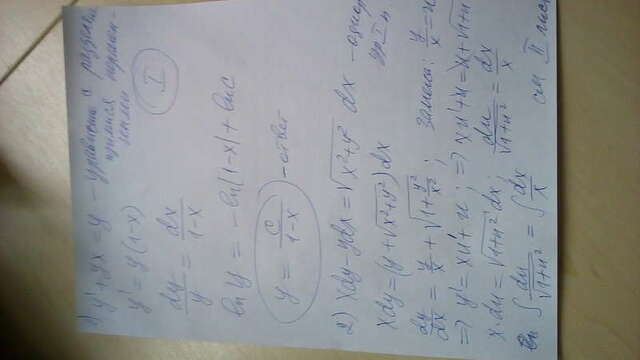 1) y' + yx = y – уравнение с разделяющимися переменными
I
y' = y(1-x)
dy/y = dx/1-x
ln y = -ln|1-x| + ln C
y = C/1-x – ответ
2) xdy - ydx = √x²+y² dx –
xdy = (y + √x²+y²)dx
dy/dx = y/x + √1+y²/x² ; замена: y/x = u
=> y' = xu' + u ; => xu' + u = u + √1+u²
x·du = √1+u² dx ; du/√1+u² = dx/x
∫ du/√1+u² = ∫ dx/x см II лист